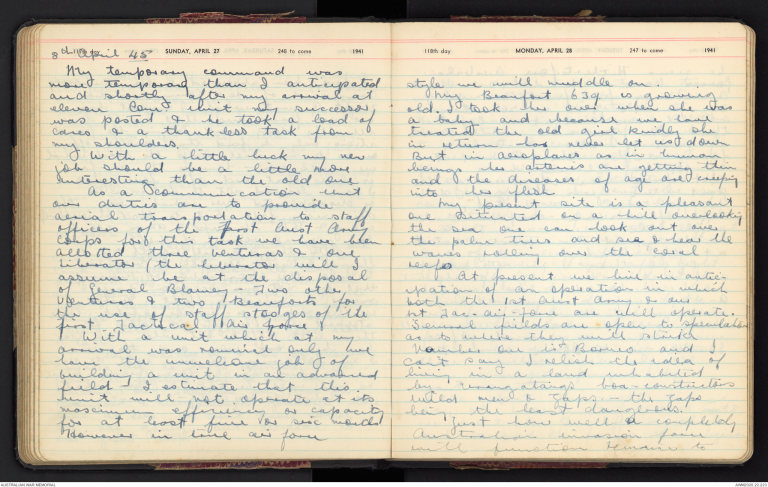 8th April 45
SUNDAY, APRIL 27
248 to come
1941
My temporary command was
more temporary than I anticipated
and shortly after my arrival at
eleven Com Unit my successor
was posted & he took a load of
cares & a thankless task from
my shoulders.
With a little luck my new
job should be a little more
interesting than the old one
As a communication unit
our duties are to provide
aerial transportation to staff
officers of the first Aust Army
Corps for this task we have been
allotted three venturas & one
Liberator (the liberator will I
assume be at the disposal
of General Blamey - Two other
Venturas & two Beauforts for
the use of staff stooges of the
first Tactical Air force
With a unit which at my
arrival was nominal only we
have the job of
building a unit in an advanced
field I estimate that this
unit will not operate at its
maximum efficiency or capacity
for at least five or six months
However in true air force
118th day
MONDAY, APRIL 28
247 to come
1941
style we will muddle on
My Beaufort 639 is growing
old, I took her over when she was
a baby and because we have
treated the old girl kindly she
in return has never let us down
But in aeroplanes as in human
beings her arteries are getting thin
and the diseases of age are creeping
into her flesh
My present site is a pleasant
one situated on a hill overlooking
the sea one can look out over
the palm trees and see & hear the
waves rolling over the coral
reefs
At present we live in antic-
ipation of an operation in which
both the 1st Aust Army & our
1st Tac-air-force are will operate.
Several fields are open to speculation
as to where they will strike
Number one is Borneo and I
can't say I relish the idea of
living in a land inhabited
by orangatangs boa-constrictors
wild men & Japs - the Japs
being the least dangerous.
Just how well a completely
Australian invasion force
will function remains to
AUSTRALIAN WAR MEMORIAL